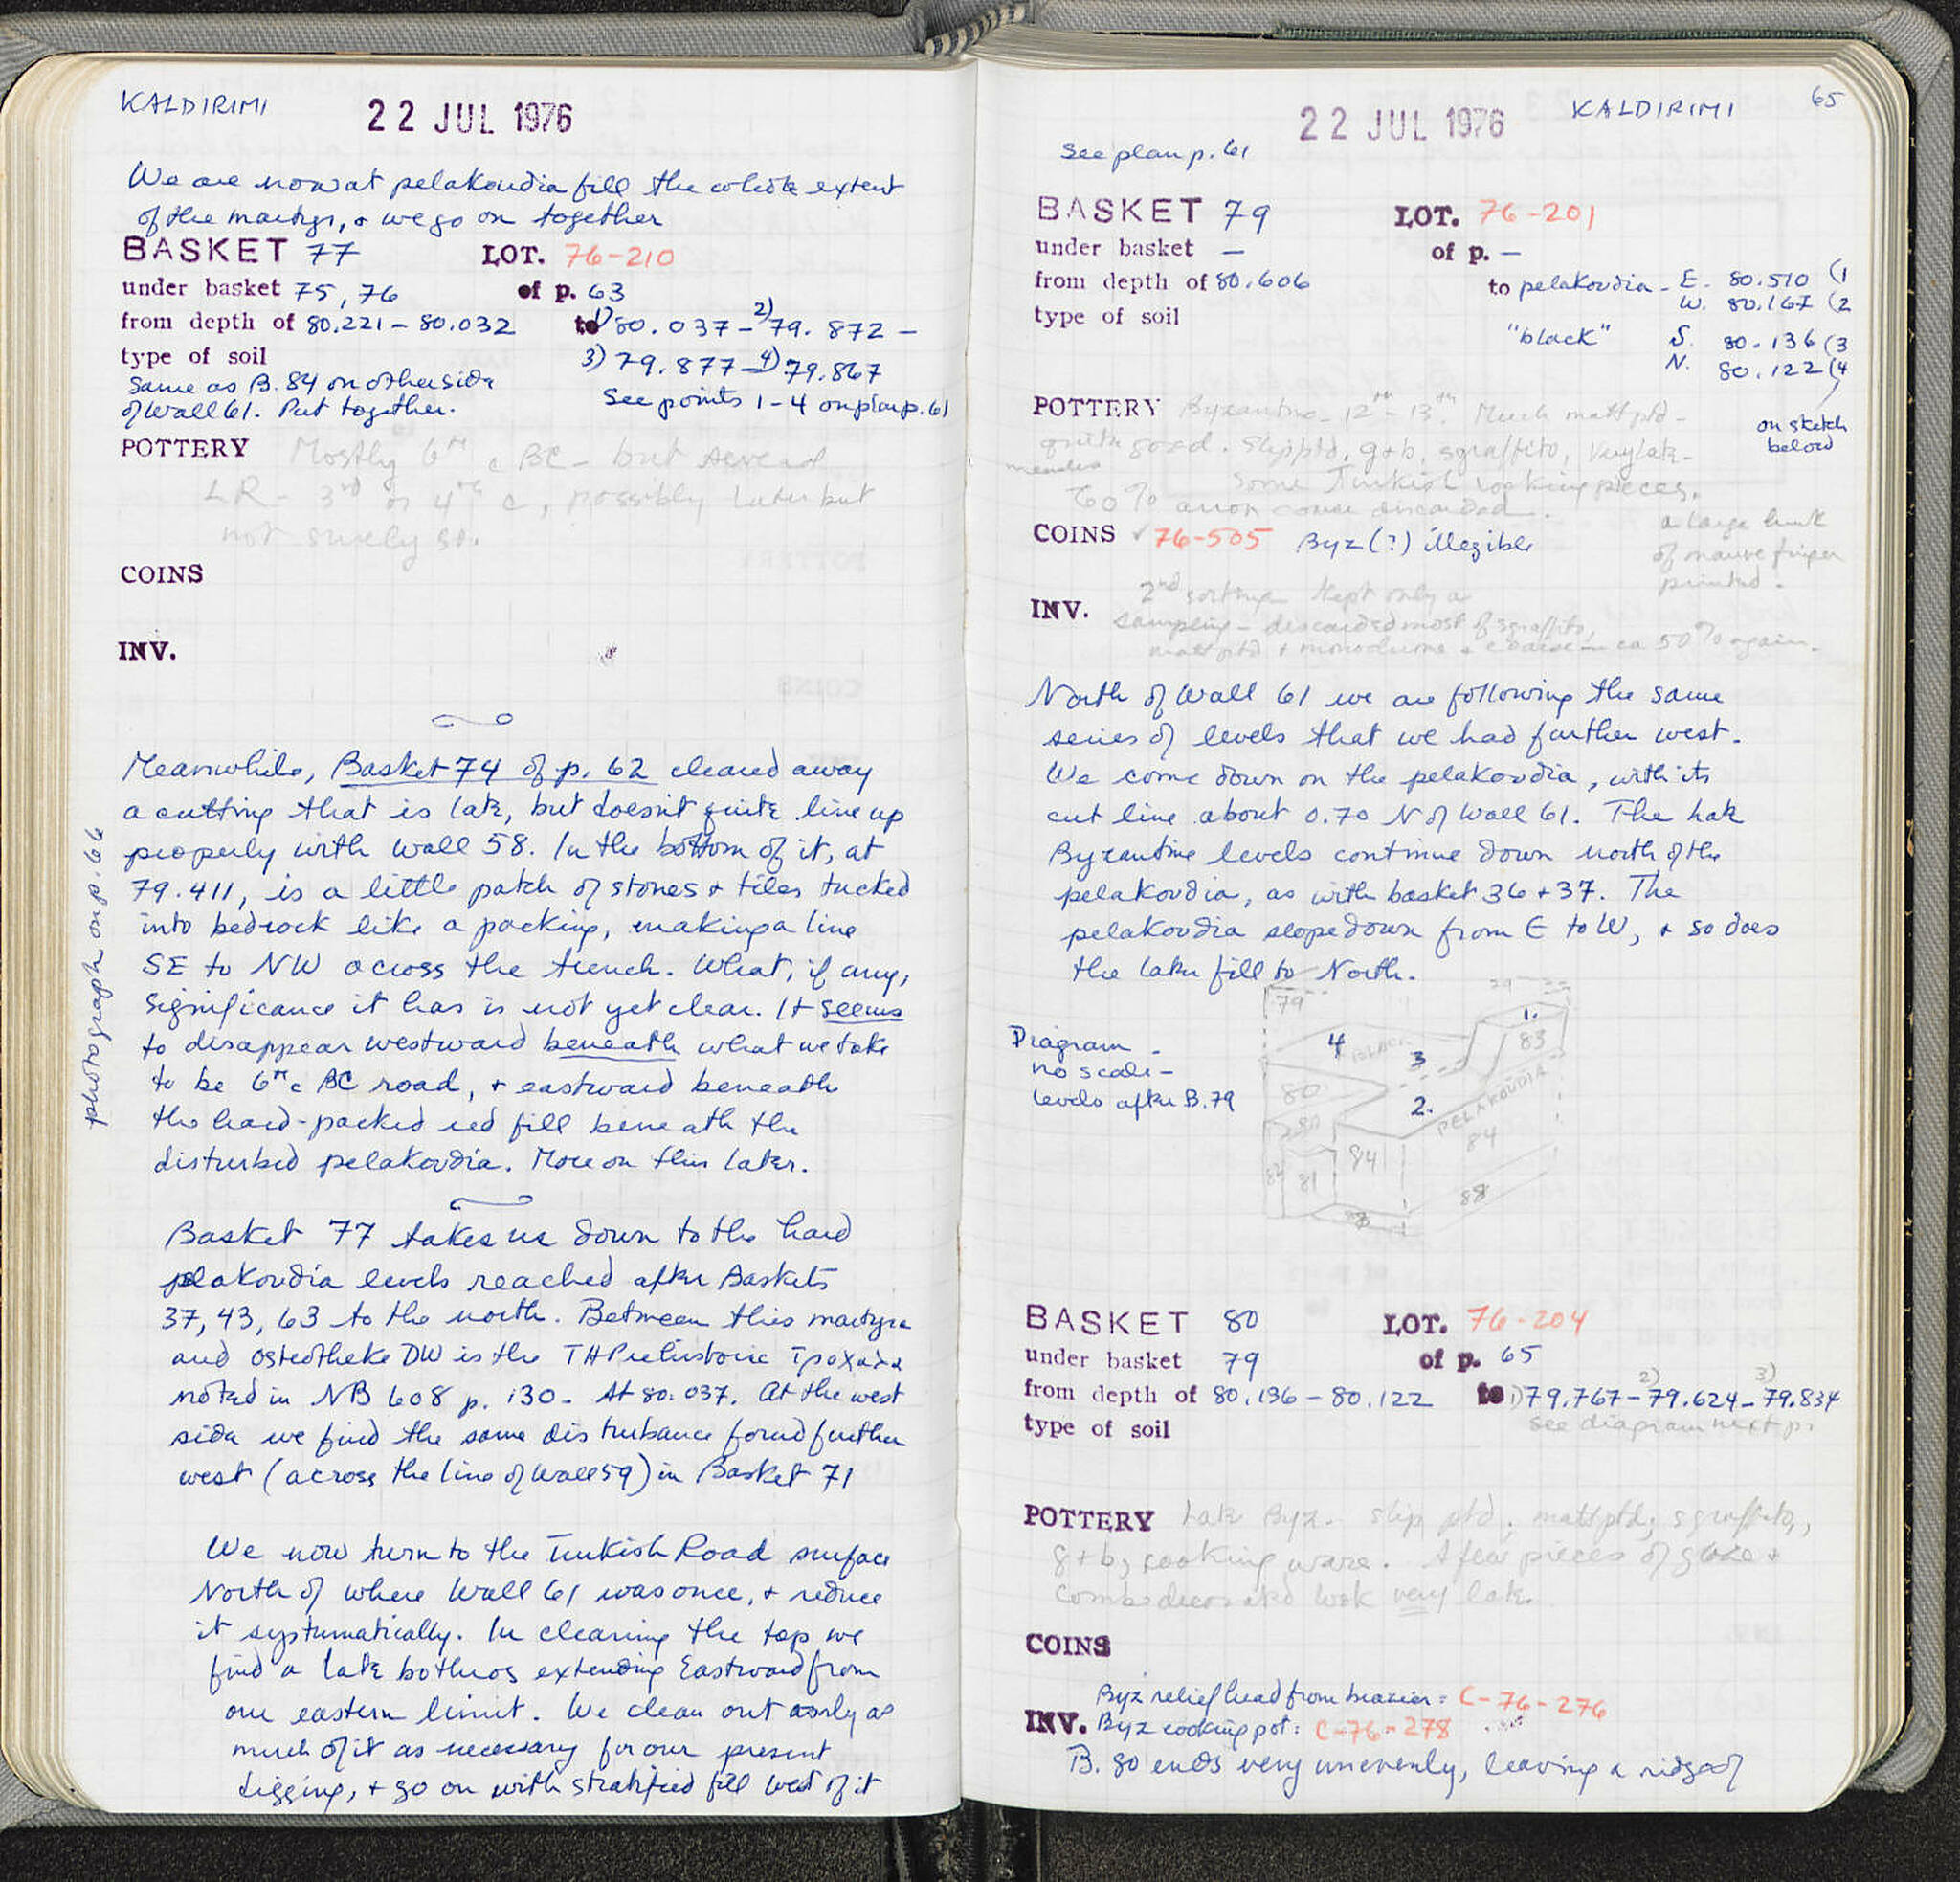 KALDIRIMI
22 JUL 1976
We are now at pelakoudia fill the whole extent
of the martyr, & we go on together
BASKET 77 LOT. 76-210
under basket 75, 76 of p. 63
from depth of 80.221 – 80.032 to 1) 80.037 – 2) 79.872 –
type of soil 3) 79.877 – 4) 79.867
Same as B. 84 on other side
of Wall 61. Put together.
See points 1-4 on plan p. 61
POTTERY Mostly 6th c BC – but several
LR – 3rd or 4th c, possibly later but
not surely so.
COINS
INV.
Meanwhile, Basket 74 of p. 62 cleared away
a cutting that is late, but doesn't quite line up
properly with wall 58. In the bottom of it, at
79.411, is a little patch of stones & tiles tucked
into bedrock like a packing, making a line
SE to NW across the trench. What, if any,
significance it has is not yet clear. It seems
to disappear westward beneath what we take
to be 6th c BC road, & eastward beneath
the hard-packed red fill beneath the
disturbed pelakoudia. More on this later.
photograph on p. 66
Basket 77 takes us down to the hard
pelakoudia levels reached after Baskets
37, 43, 63 to the north. Between this martyra
and osteotheke DW is the TH Prehistoric τροχαλα
noted in NB 608 p. 130 – At 80.037. At the west
side we find the same disturbance found further
west (across the line of Wall 59) in Basket 71
We now turn to the Turkish Road surface
North of where Wall 61 was once, & reduce
it systematically. In clearing the top we
find a late bothros extending Eastward from
our eastern limit. We clean out only as
much of it as necessary for our present
digging, & go on with stratified fill west of it
65
22 JUL 1976 KALDIRIMI
See plan p. 61
BASKET 79 LOT. 76-201
under basket – of p. –
from depth of 80.606 to pelakoudia – E. 80.510 (1
W. 80.167 (2
type of soil "black" S. 80.136 (3
N. 80.122 (4
on sketch
below
POTTERY Byzantine – 12th – 13th. Much matt ptd –
quite good. Slip ptd, g+b, sgraffito, Very late –
some Turkish looking pieces.
60% coarse discarded.
COINS ✓ 76-505 Byz (?) illegible
a large hunk
of mauve finger
printed.
INV. 2nd sorting kept only a
sampling – discarded most of sgraffito,
matt ptd + monochrome & coarse – ca 50% again.
North of Wall 61 we are following the same
series of levels that we had further west.
We come down on the pelakoudia, with its
cut line about 0.70 N of Wall 61. The late
Byzantine levels continue down north of the
pelakoudia, as with basket 36 + 37. The
pelakoudia slope down from E to W, & so does
the later fill to North.
Diagram –
no scale –
levels after B. 79
79
29
1.
83
4 BLACK 3
80
2.
PELAKOUDIA
84
280
82 81 84
88
BASKET 80 LOT. 76-204
under basket 79 of p. 65
from depth of 80.136 – 80.122 to 1) 79.767 – 2) 79.624 – 3) 79.834
see diagram next p.
type of soil
POTTERY Late Byz – slip ptd; matt ptd; sgraffito,
g+b, cooking ware. A few pieces of glaze +
combedecorated look very late.
COINS
Byz relief head from brazier = C-76-276
INV. Byz cooking pot: C-76-278
B. 80 ends very unevenly, leaving a ridge of